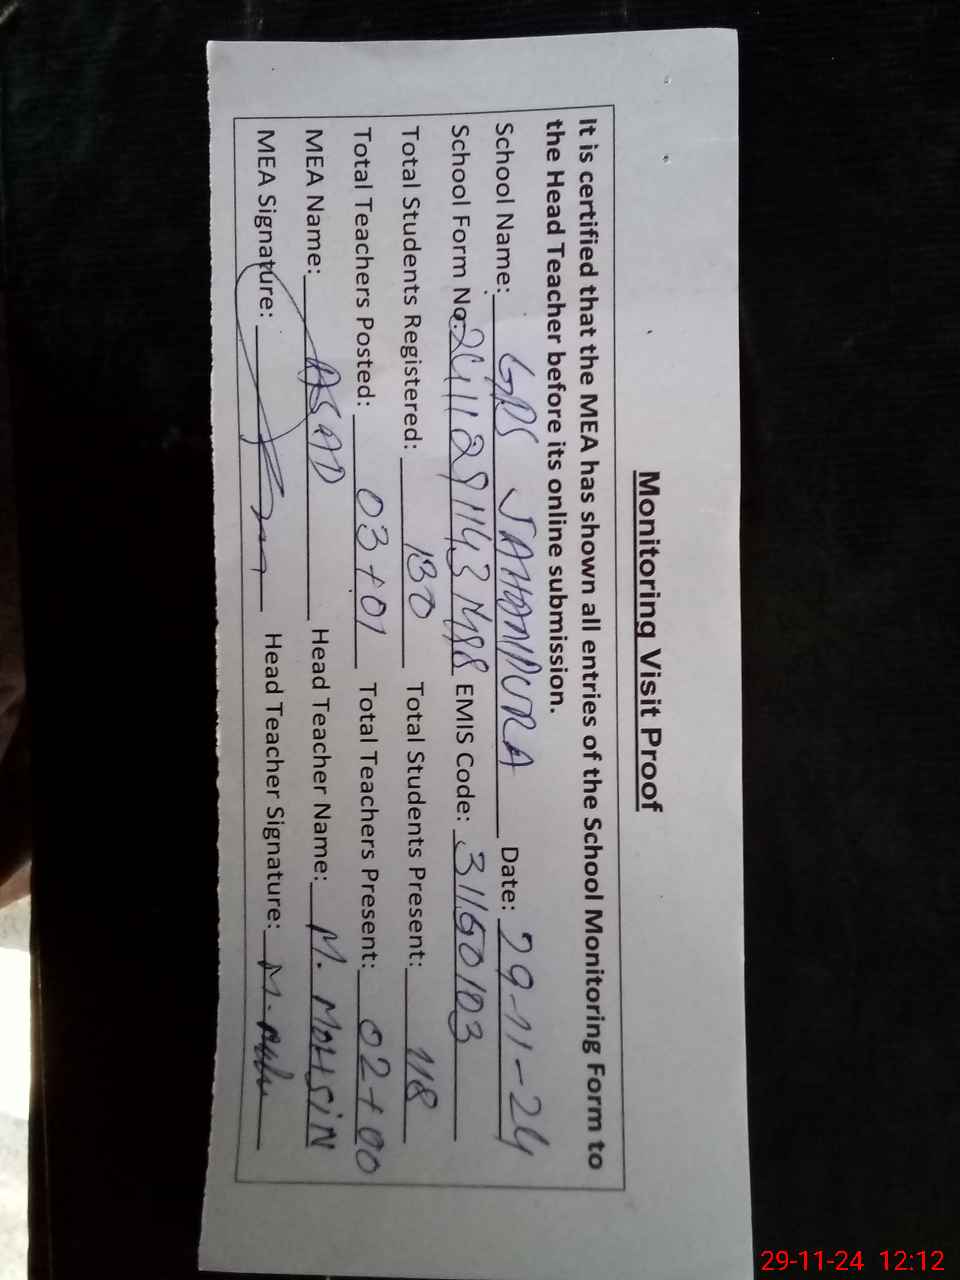 Monitoring Visit Proof
It is certified that the MEA has shown all entries of the School Monitoring Form to
the Head Teacher before its online submission.
School Name: GPS JAHANPURA Date: 29-11-24
School Form No: EMIS Code: 31160103
Total Students Registered: 130 Total Students Present: 118
Total Teachers Posted: 03+01 Total Teachers Present: 02+00
MEA Name: ASAD Head Teacher Name: M. MOHSiN
MEA Signature: Head Teacher Signature:
29-11-24 12:12